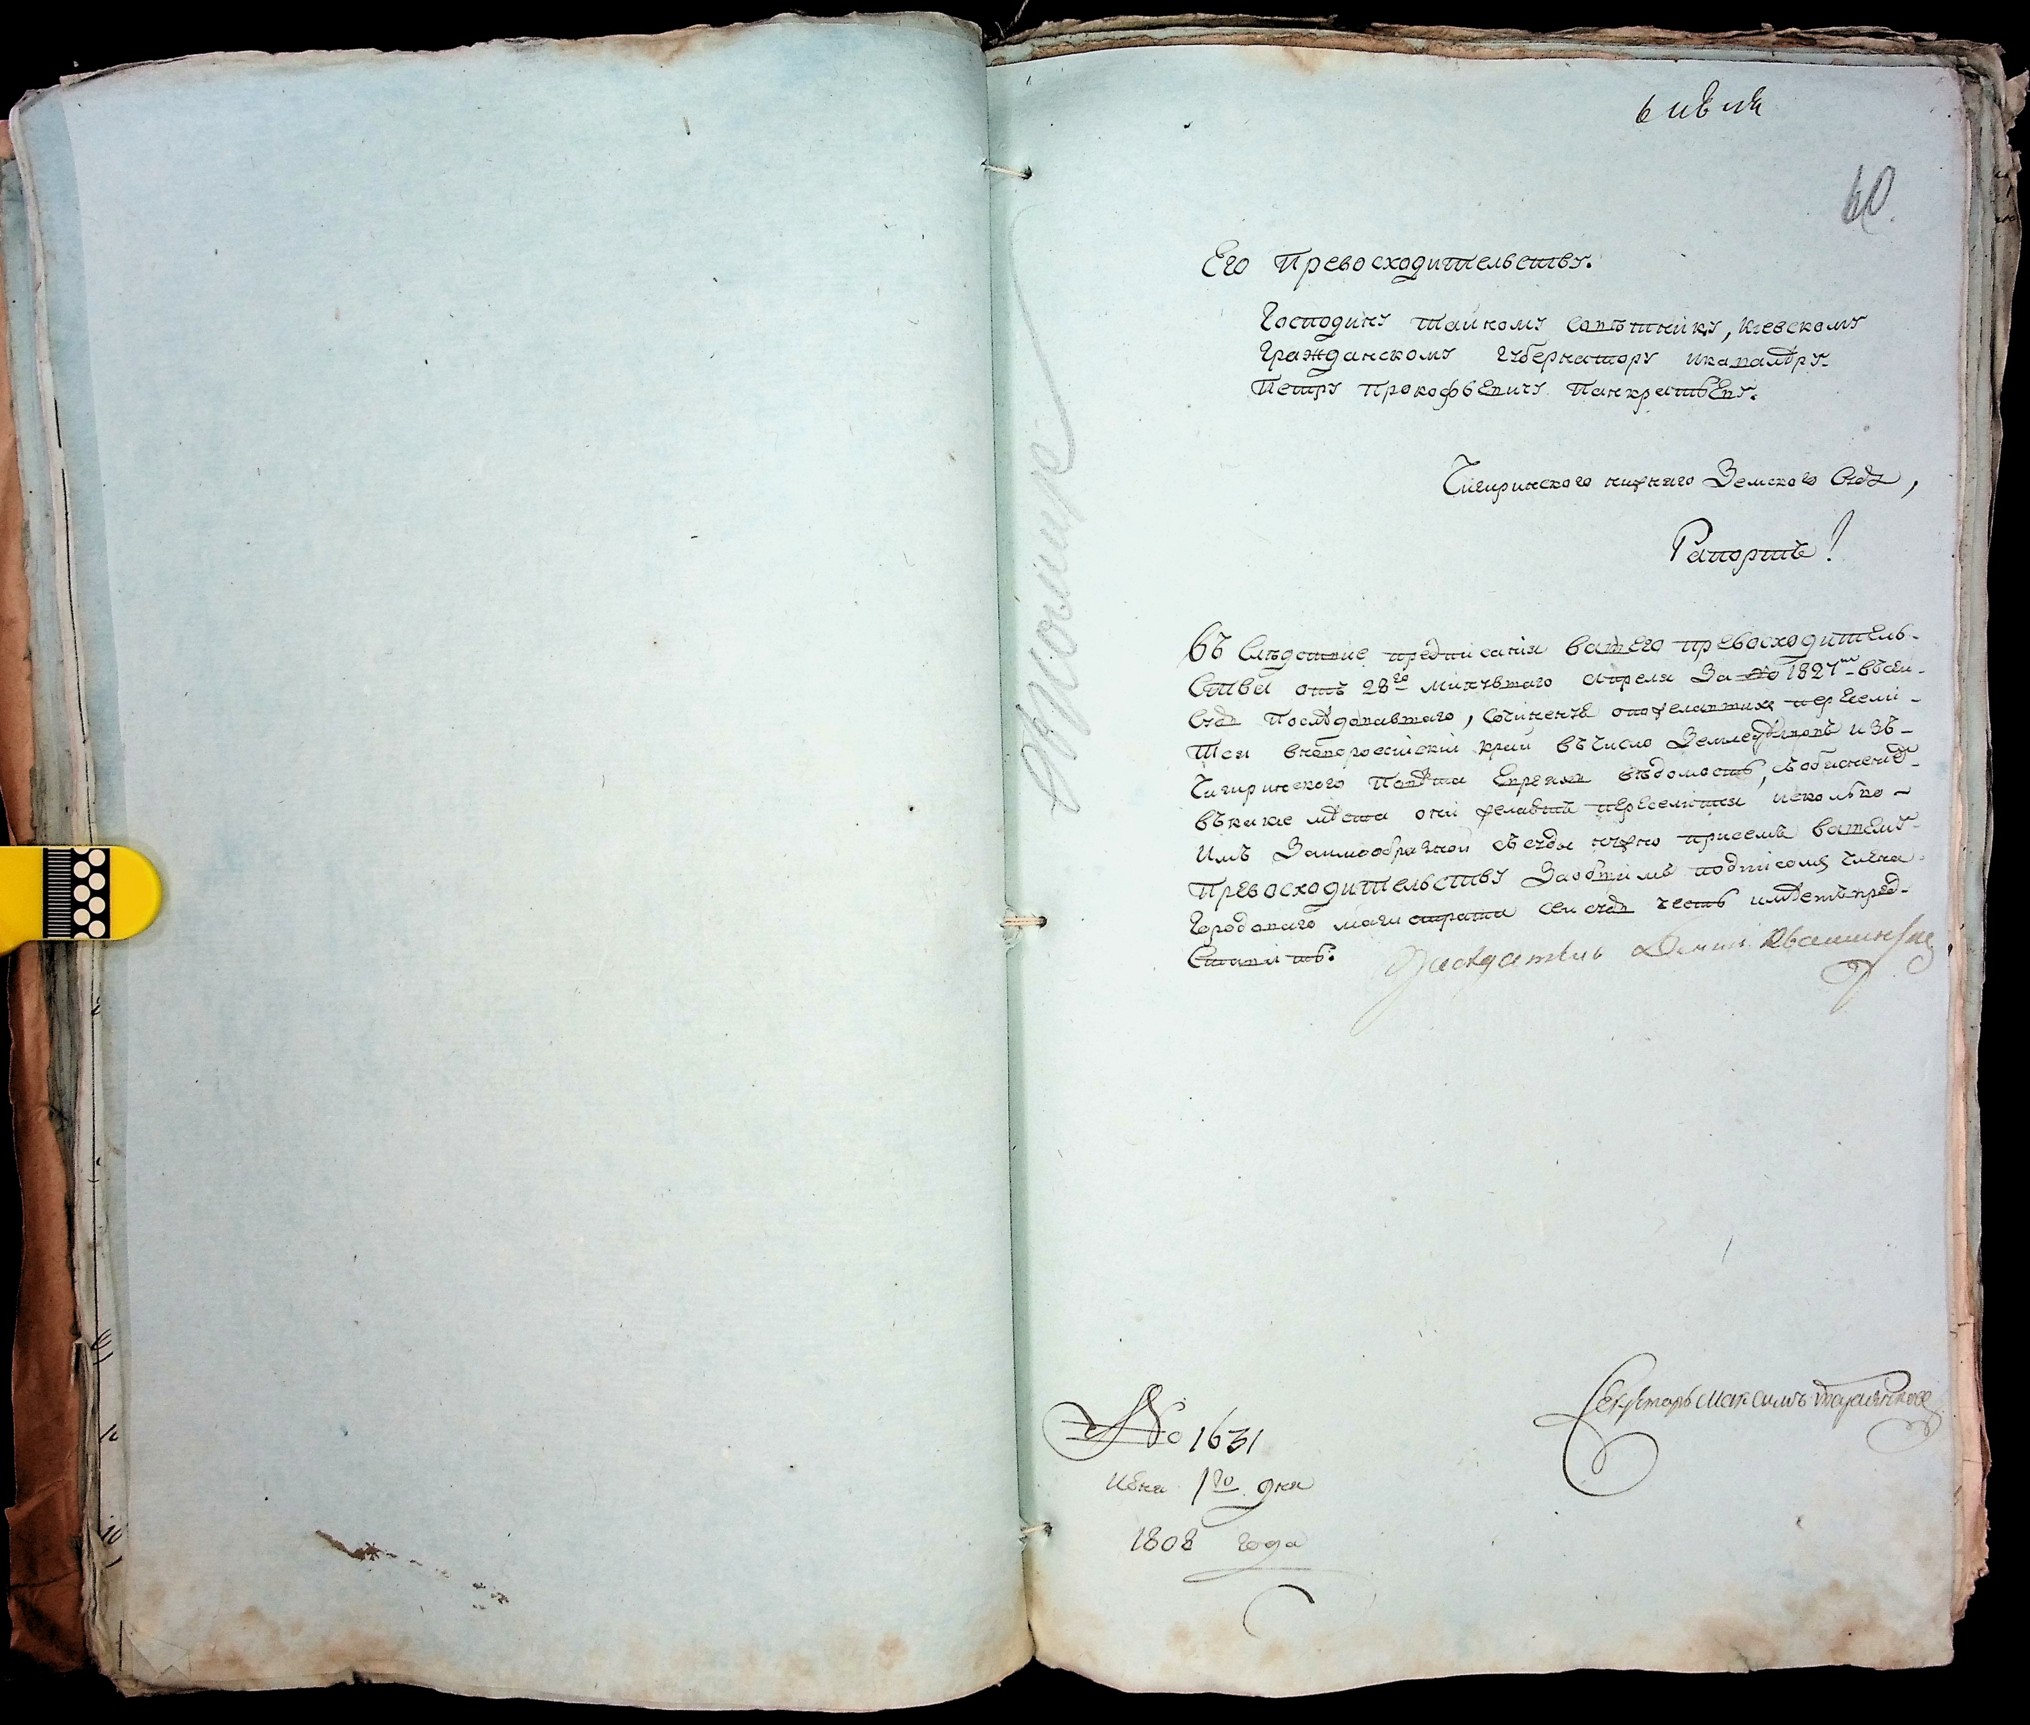 6 июня
60.
Его Превосходительству.
Господину тайному советнику, киевскому
Гражданскому губернатору икавалеру
Петру Прокофьевичу Панкратьеву.
Чигиринского нижняго Земского Суда,
Рапортъ!
Въ Следствие предписания вашего превосходитель-
Ства отъ 28го минувшаго апреля За № 1827м въсеи
Судъ Последовавшаго, Сочиненъ ожелающихъ пересели-
тся вновороссийскій край въчисло Земледелцовъ изъ-
Чигиринского Повета Евреяхъ ведомость, собясненіе-
въкакие места они желаютъ переселится исколько-
Имъ Заимообразной съсуды нужно присемъ вашему-
Превосходительству Заобщимъ подписомъ члена
Городоваго магистрата сеи судъ честь имеетъпред-
Ставить.
Заседатель
№ 1631
Июня 1го дня
1808 года
Секретарь Максимъ